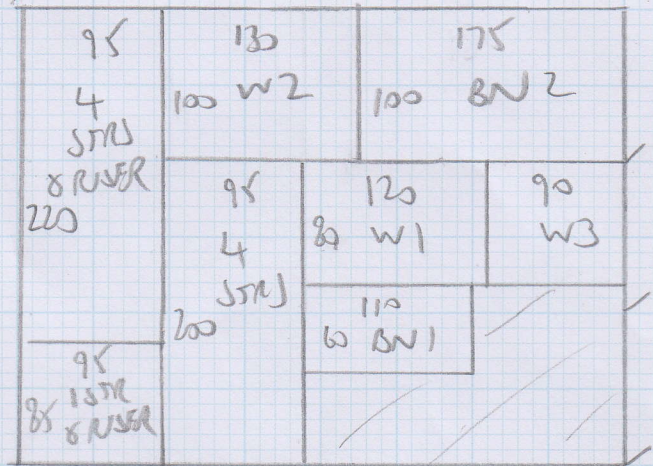 95
4
STRS
& RISER
220
130
100 W2
175
100 BN2
95
4
STRS
200
120
80 W1
90
W3
110
60 BN1
95
1 STR
85 & RISER